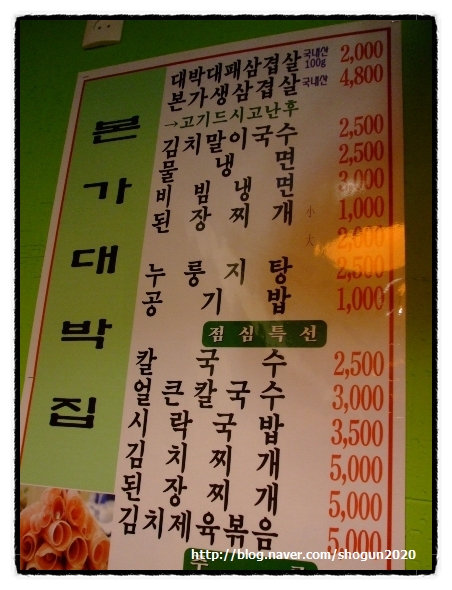 본가대박집
대박대패삼겹살 국내산 100g 2,000
본가생삼겹살 국내산 4,800
→고기드시고난후
김치말이국수 2,500
물 냉 면 2,500
비 빔 냉 면 3,000
된 장 찌 개 小 1,000
大 2,000
누 룽 지 탕 2,500
공 기 밥 1,000
점 심 특 선
칼 국 수 2,500
얼 큰 칼 국 수 3,000
시 락 국 밥 3,500
김 치 찌 개 5,000
된 장 찌 개 5,000
김치제육볶음 5,000
http://blog.naver.com/shogun2020